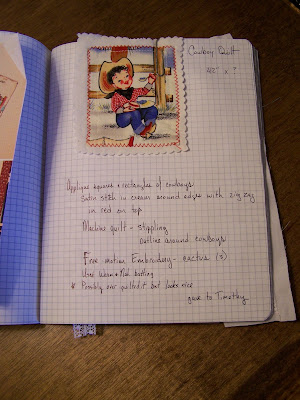 Cowboy Quilt
42" x ?
Applique squares + rectangles of cowboys
Satin stitch in cream around edges with zig zag
in red on top
Machine quilt - stippling
outline around cowboys
Free motion Embroidery - cactus (s)
Used Warm + Nat batting
* Possibly over quilted it but looks nice
gave to Timothy